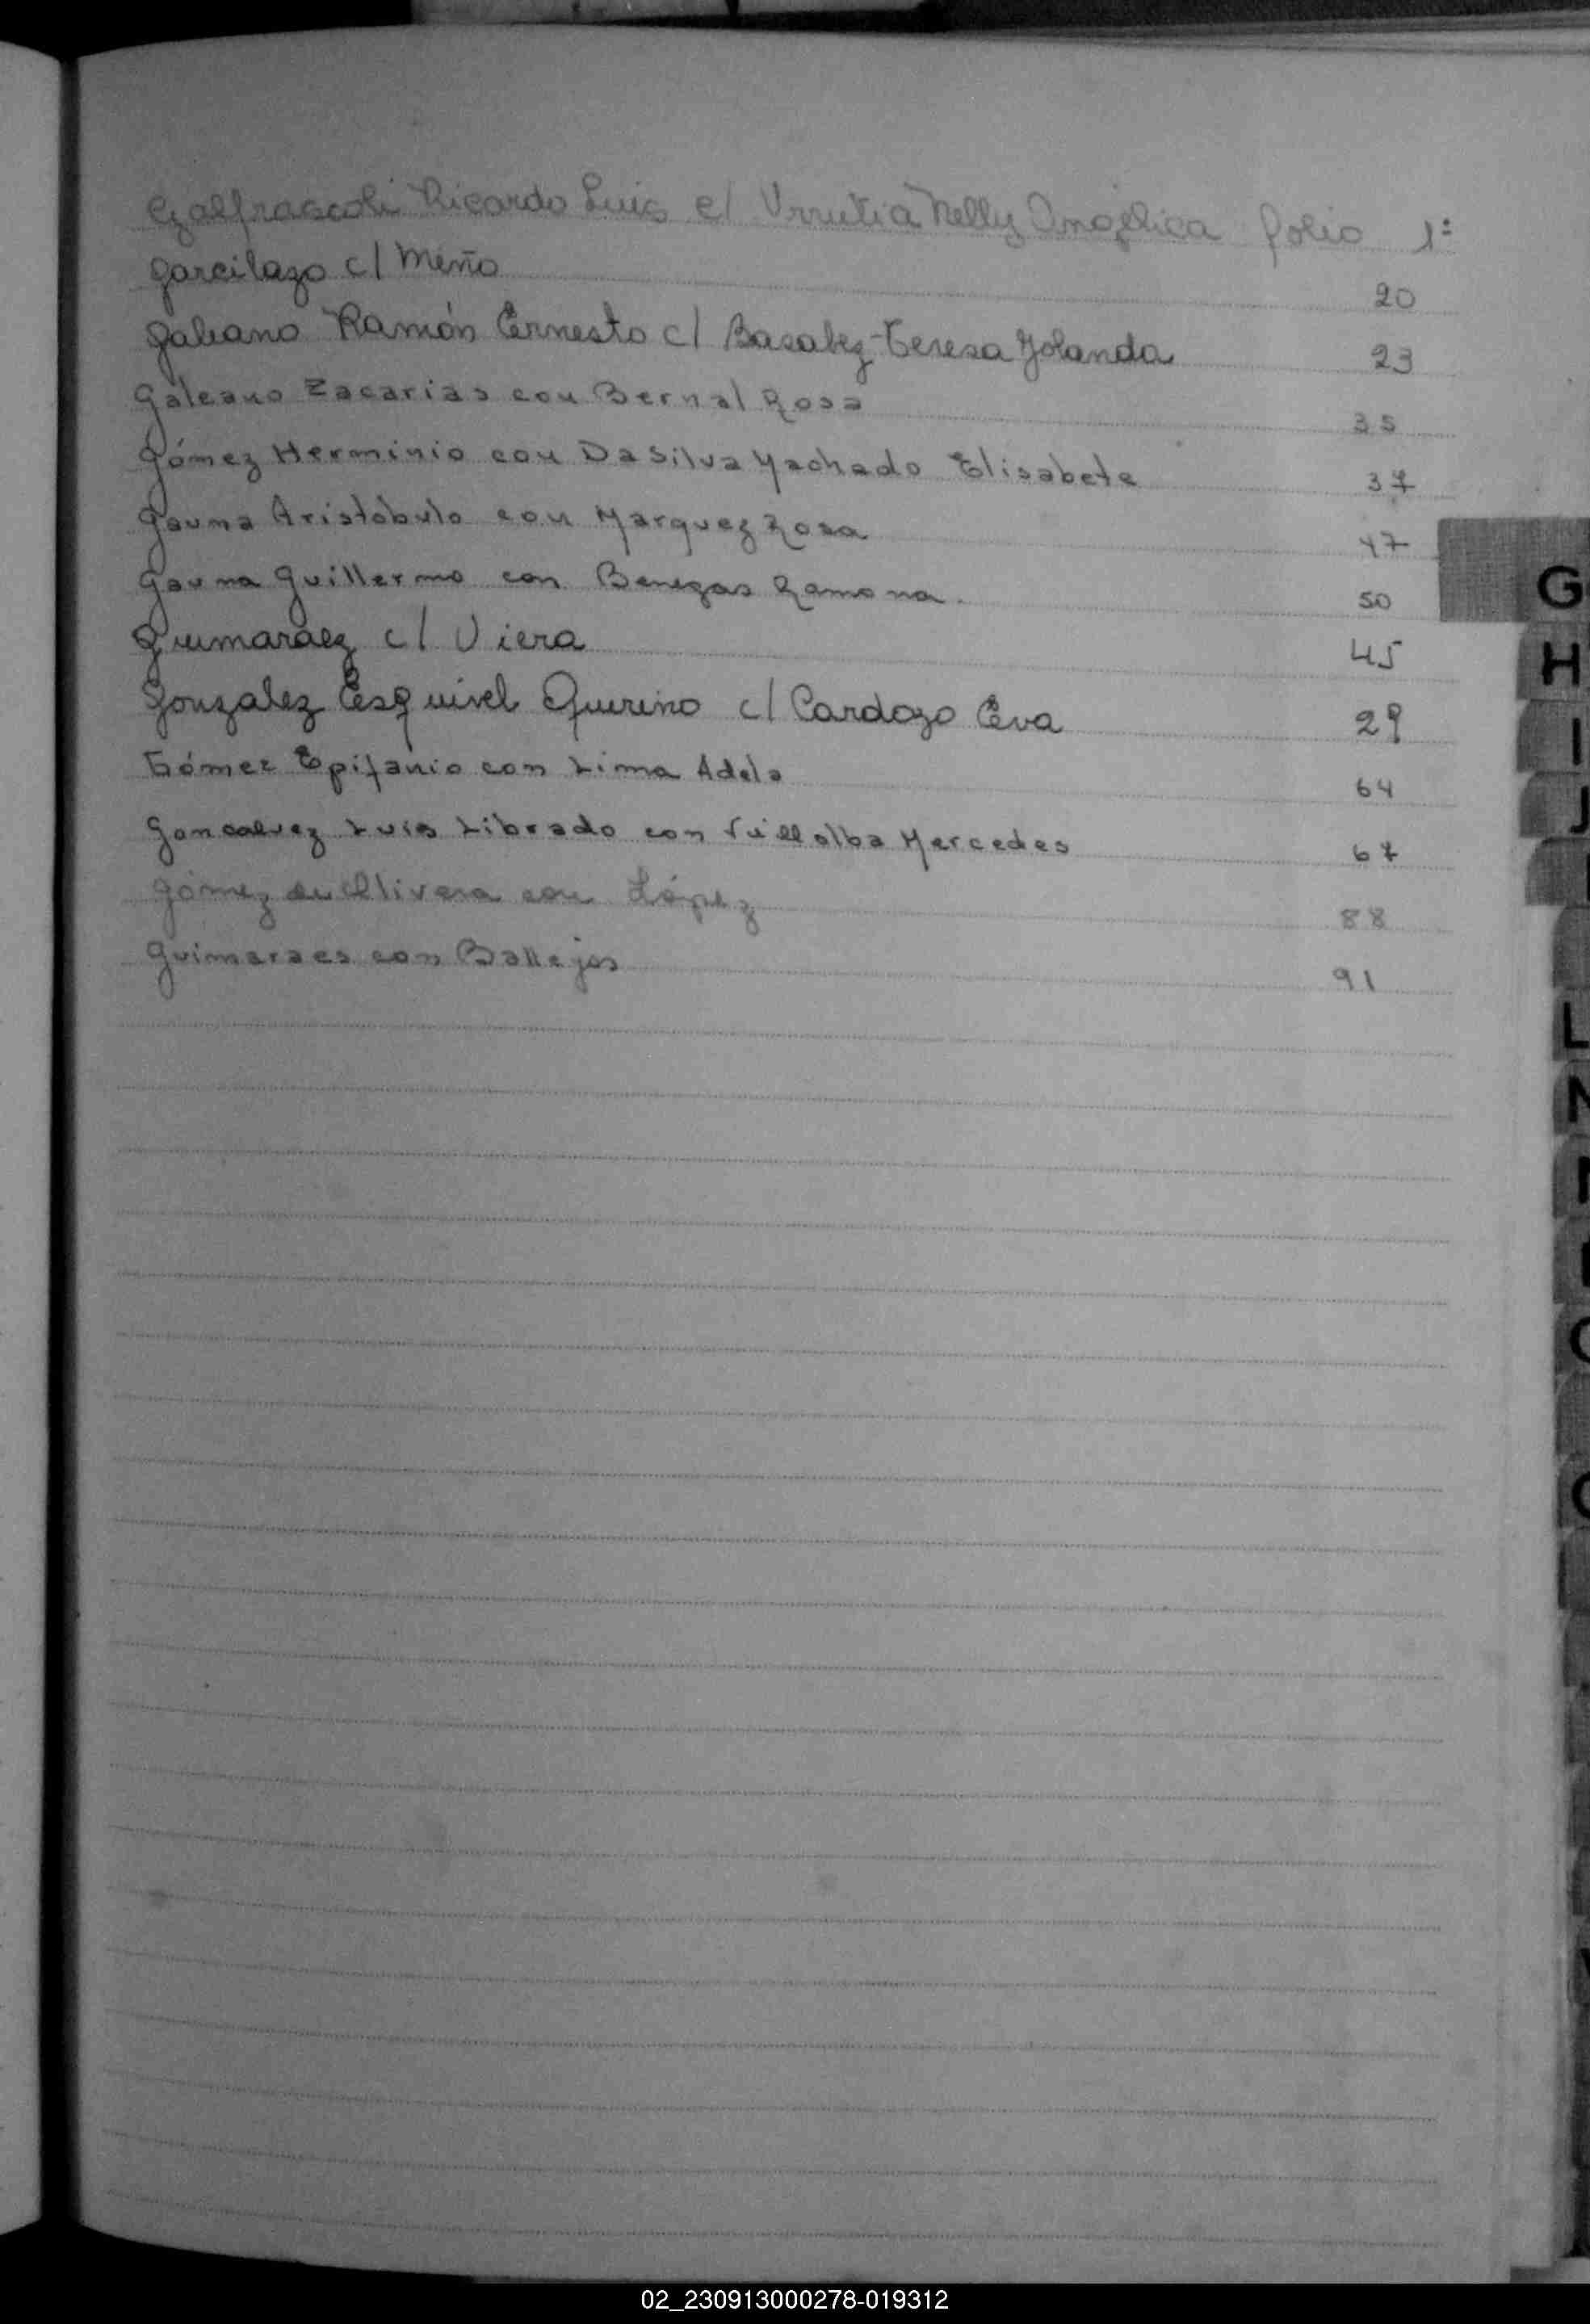 Galfrascoli Ricardo Luis c/ Urrutia Nelly Angélica folio 1º
Garcilazo c/ Miño 20
Galeano Ramón Ernesto c/ Basabez Teresa Yolanda 23
Galeano Zacarias con Bernal Rosa 35
Gómez Herminio con Da Silva Machado Elisabete 37
Gauna Aristóbulo con Marquez Rosa 47
Gauna Guillermo con Benegas Ramona. 50
Guimaraez c/ Viera 45
Gonzalez Esquivel Quirino c/ Cardozo Eva 29
Gómez Epifanio con Lima Adela 64
Goncalvez Luis Librado con Villalba Mercedes 67
Gómez de Olivera con López 88
Guimaraes con Ballejos 91
G
H
I
J
L
N
02_230913000278-019312